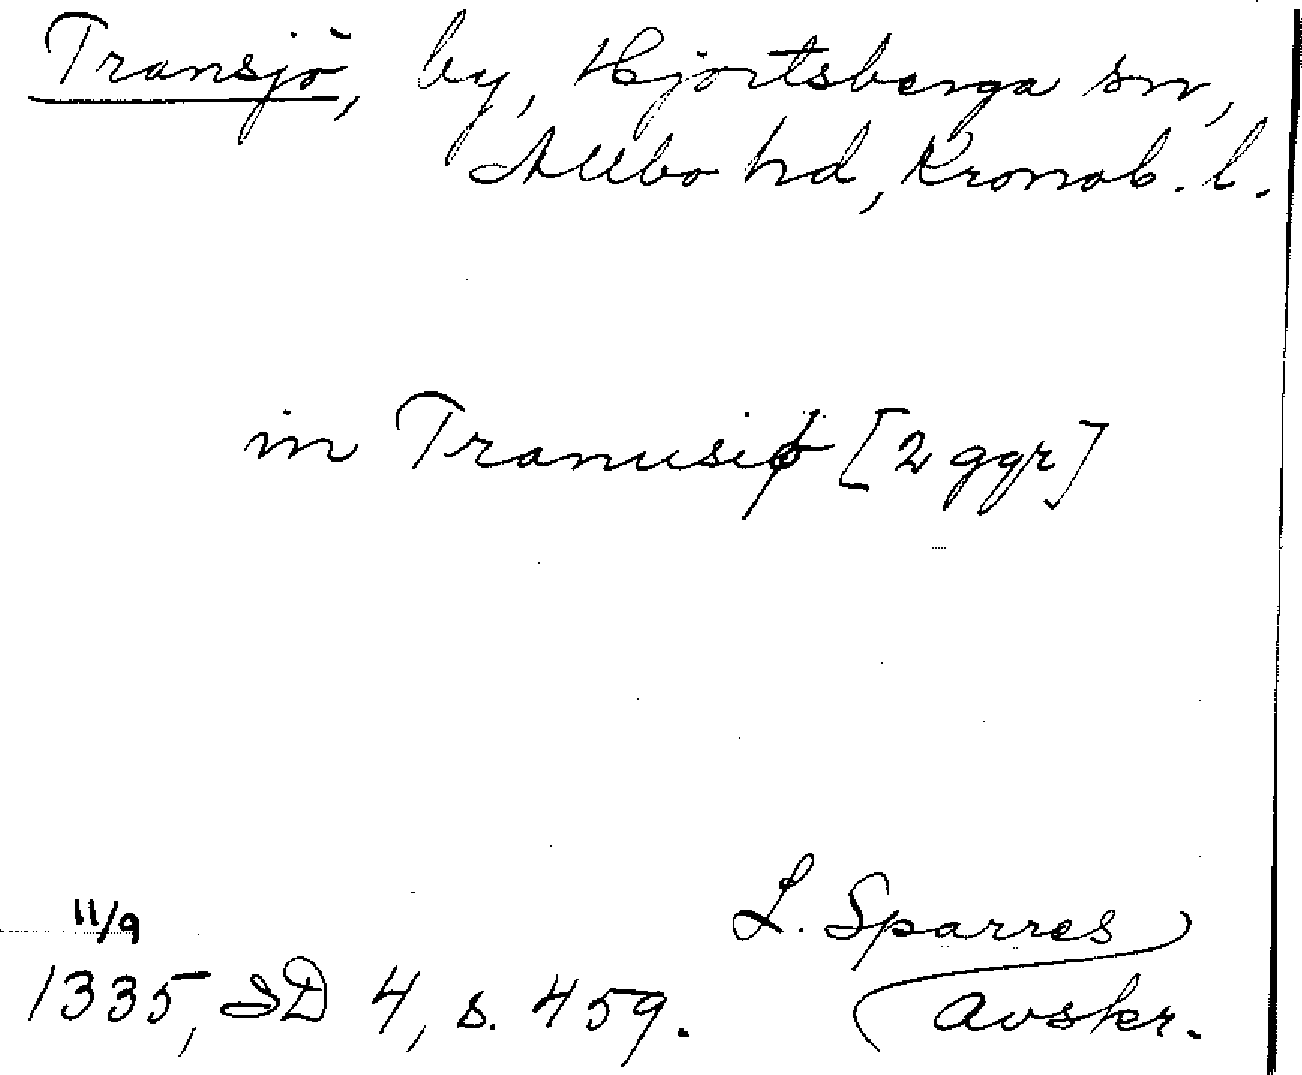 Transjö, by, Hjortsberga sn,
Allbo hd, Kronob. l.
in Tranusiø [2 ggr]
11/9
1335, SD 4, s. 459.
L. Sparres
avskr.